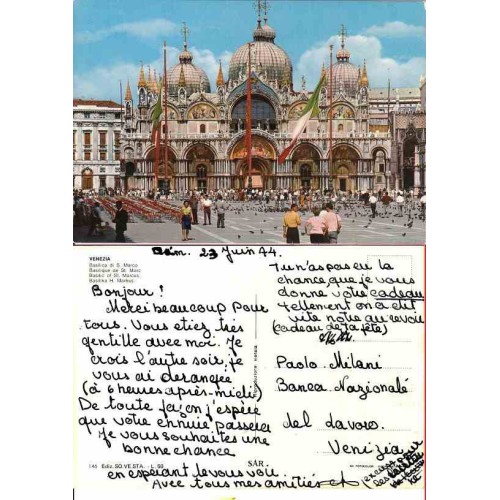 Dim. 23 Juin 74.
VENEZIA
Basilica di S. Marco
Basilique de St. Marc
Basilic of St. Marcus
Basilika H. Markus
Bonjour!
Merci beaucoup pour
tous. Vous etiez très
gentille avec moi. Je
crois l'autre soir, je
vous ai derangée
(à 6 heures après-midi)
De toute façon j'espère
que votre ennuie passera
Je vous souhaites une
bonne chance
en espérant le vous voir.
Avec tous mes amitiés
Tu n'as pas eu la
chance que je vous
donne votre cadeau
tellement on a été
vite notre au revoir
(cadeau de ta fête)
Paolo Milani
Banca Nazionale
del Lavoro
Venezia
145 Ediz. SO.VE.STA. - L. 50
SAR